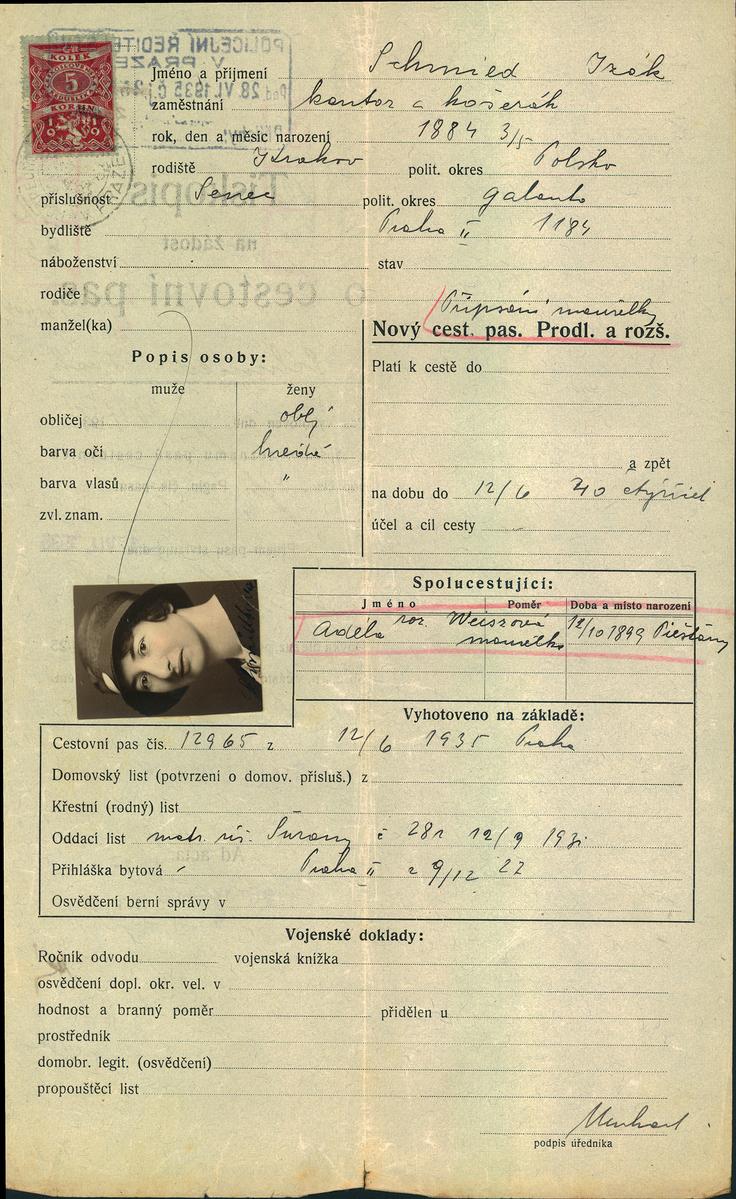 KOLEK
5
KORUN
1919
POLICEJNÍ ŘEDITEL
V PRAZE
28. VI. 1935
Jméno a příjmení Schmied Izák
zaměstnání kantor a košerák
rok, den a měsíc narození 1884 3/5
rodiště Krakov polit. okres Polsko
příslušnost Senec polit. okres Galanta
bydliště Praha II 1184
náboženství stav
rodiče
Připsání manželky
manžel(ka) Nový cest. pas. Prodl. a rozš.
Popis osoby:
Platí k cestě do
muže ženy
obličej oblý
barva očí hnědé
a zpět
barva vlasů "
na dobu do 12/6 40
zvl. znam.
účel a cíl cesty
Tiskopis
na žádost
o cestovní pas.
Spolucestující:
Jméno Poměr Doba a místo narození
Adéla roz. Weiszová manželka 12/10 1899 Piešťany
Vyhotoveno na základě:
Cestovní pas čís. 12965 z 12/6 1935 Praha
Domovský list (potvrzení o domov. přísluš.) z
Křestní (rodný) list
Oddací list matr. Šurany č 28 12/9 193
Přihláška bytová Praha II z 9/12 27
Ad acta
Osvědčení berní správy v
Vojenské doklady:
Ročník odvodu vojenská knížka
osvědčení dopl. okr. vel. v
hodnost a branný poměr přidělen u
prostředník
domobr. legit. (osvědčení)
propouštěcí list
podpis úředníka